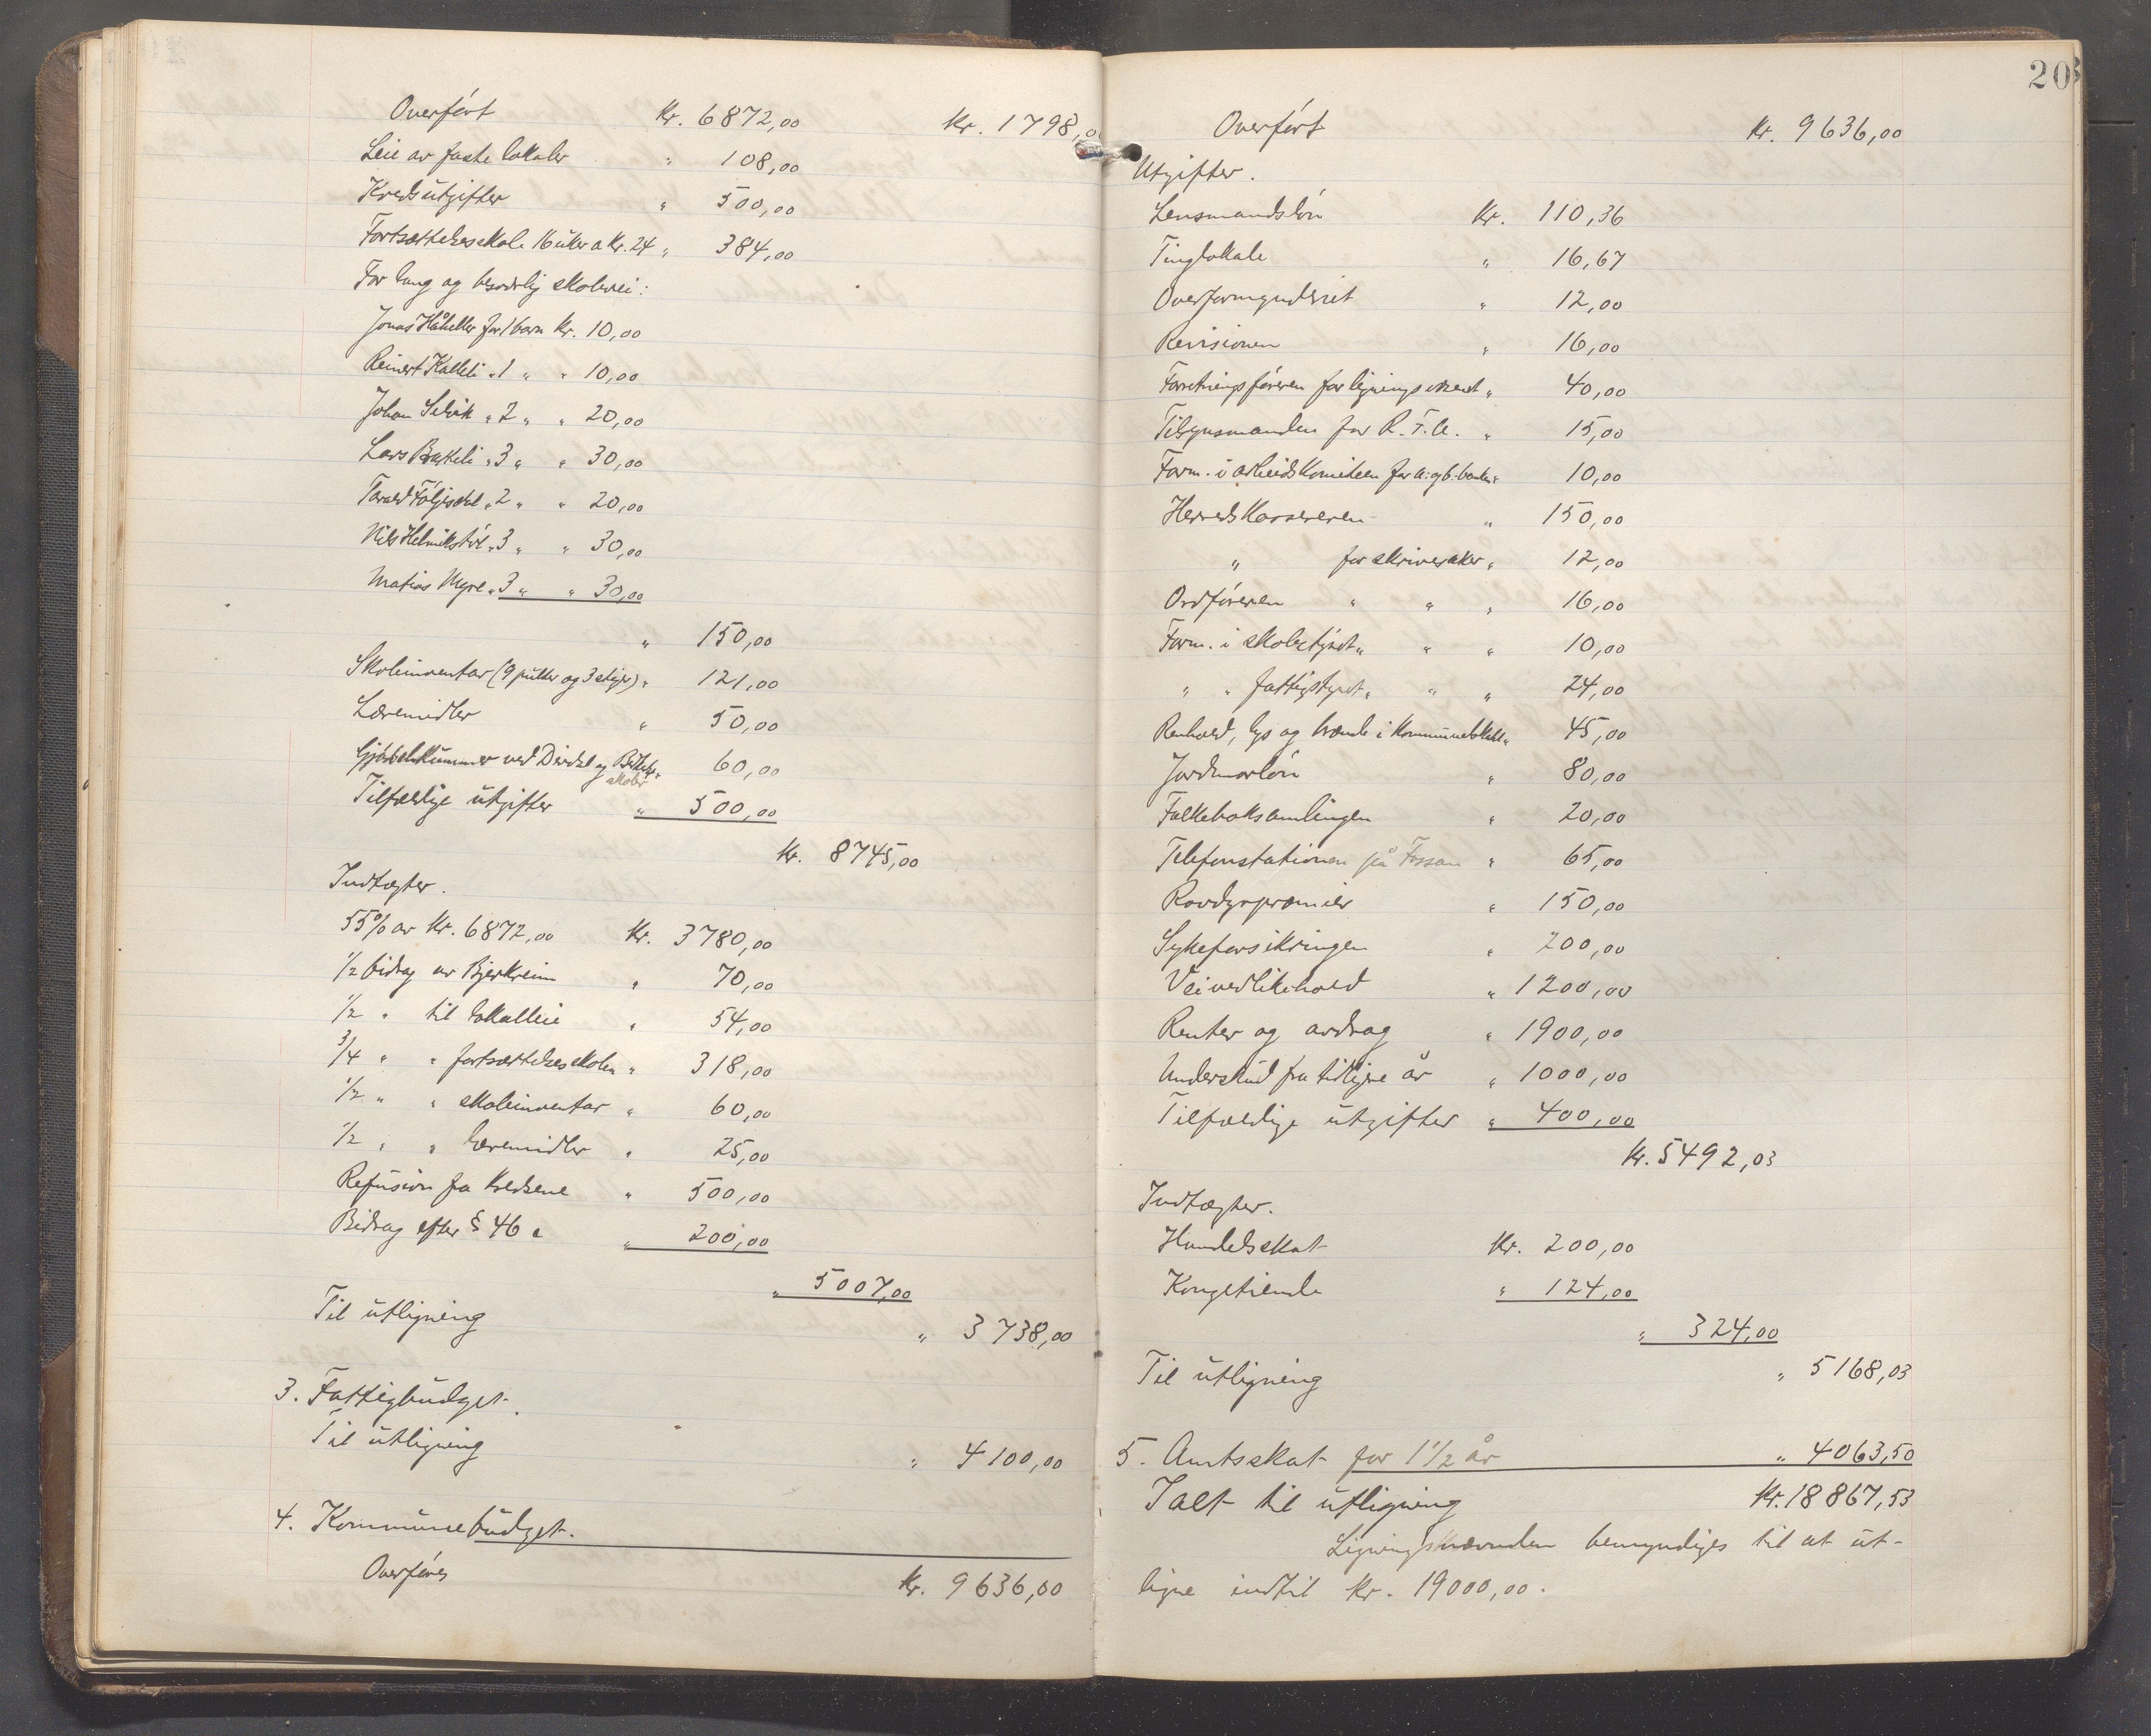 Overført Kr. 6872,00 Kr. 1798,0
Leie av faste lokaler " 108,00
Kredsutgifter " 500,00
Fortsættelsesskole 16 uker a kr. 24 " 384,00
For lang og besværlig skolevei:
Jonas Håheller for 1 barn Kr. 10,00
Reinert Kalleli " 1 " " 10,00
Johan Selvik " 2 " " 20,00
Lars Brekkeli " 3 " " 30,00
Tarald Følgjesdal " 2 " " 20,00
Nils Helmikstøl " 3 " " 30,00
Matias Myre " 3 " " 30,00
" 150,00
Skoleinventar (9 pulter og 3 stiger) " 121,00
Læremidler " 50,00
ved Dirdal og skoler " 60,00
Tilfældige utgifter " 500,00
Kr. 8745,00
Indtægter.
55% av Kr. 6872,00 Kr. 3780,00
1/2 bidrag av Bjerkreim " 70,00
1/2 " til lokalleie " 54,00
3/4 " " fortsættelsesskolen " 318,00
1/2 " " skoleinventar " 60,00
1/2 " " læremidler " 25,00
Refusion fra kredsene " 500,00
Bidrag efter § 46 a " 200,00
" 5007,00
Til utligning " 3738,00
3. Fattigbudget.
Til utligning " 4100,00
4. Kommunebudget.
Overføres Kr. 9636,00
20
Overført Kr. 9636,00
Utgifter.
Lensmandsløn Kr. 110,36
Tinglokale " 16,67
Overformynderiet " 12,00
Revisionen " 16,00
Forretningsføreren for ligningsvæsenet " 40,00
Tilsynsmanden for R.T.A. " 15,00
Form. i arbeidskomiteen for a. og b. banken " 10,00
Herredskassereren " 150,00
" for skrivesaker " 12,00
Ordføreren " " " 16,00
Form. i skolestyret " " " 10,00
" " fattigstyret " " " 24,00
Renhold, lys og brænde i kommunelokalet " 45,00
Jordmorløn " 80,00
Folkeboksamlingen " 20,00
Telefonstationen på Fossan " 65,00
Rovdyrpræmier " 150,00
Sykeforsikringen " 200,00
Veivedlikehold " 1200,00
Renter og avdrag " 1900,00
Underskud fra tidligere år " 1000,00
Tilfældige utgifter " 400,00
Kr. 5492,03
Indtægter.
Handelsskat Kr. 200,00
Kongetiende " 124,00
" 324,00
Til utligning " 5168,03
5. Amtsskat for 1 1/2 år " 4063,50
Ialt til utligning Kr. 18867,53
Ligningsnævnden bemyndiges til at ut-
ligne indtil kr. 19000,00.